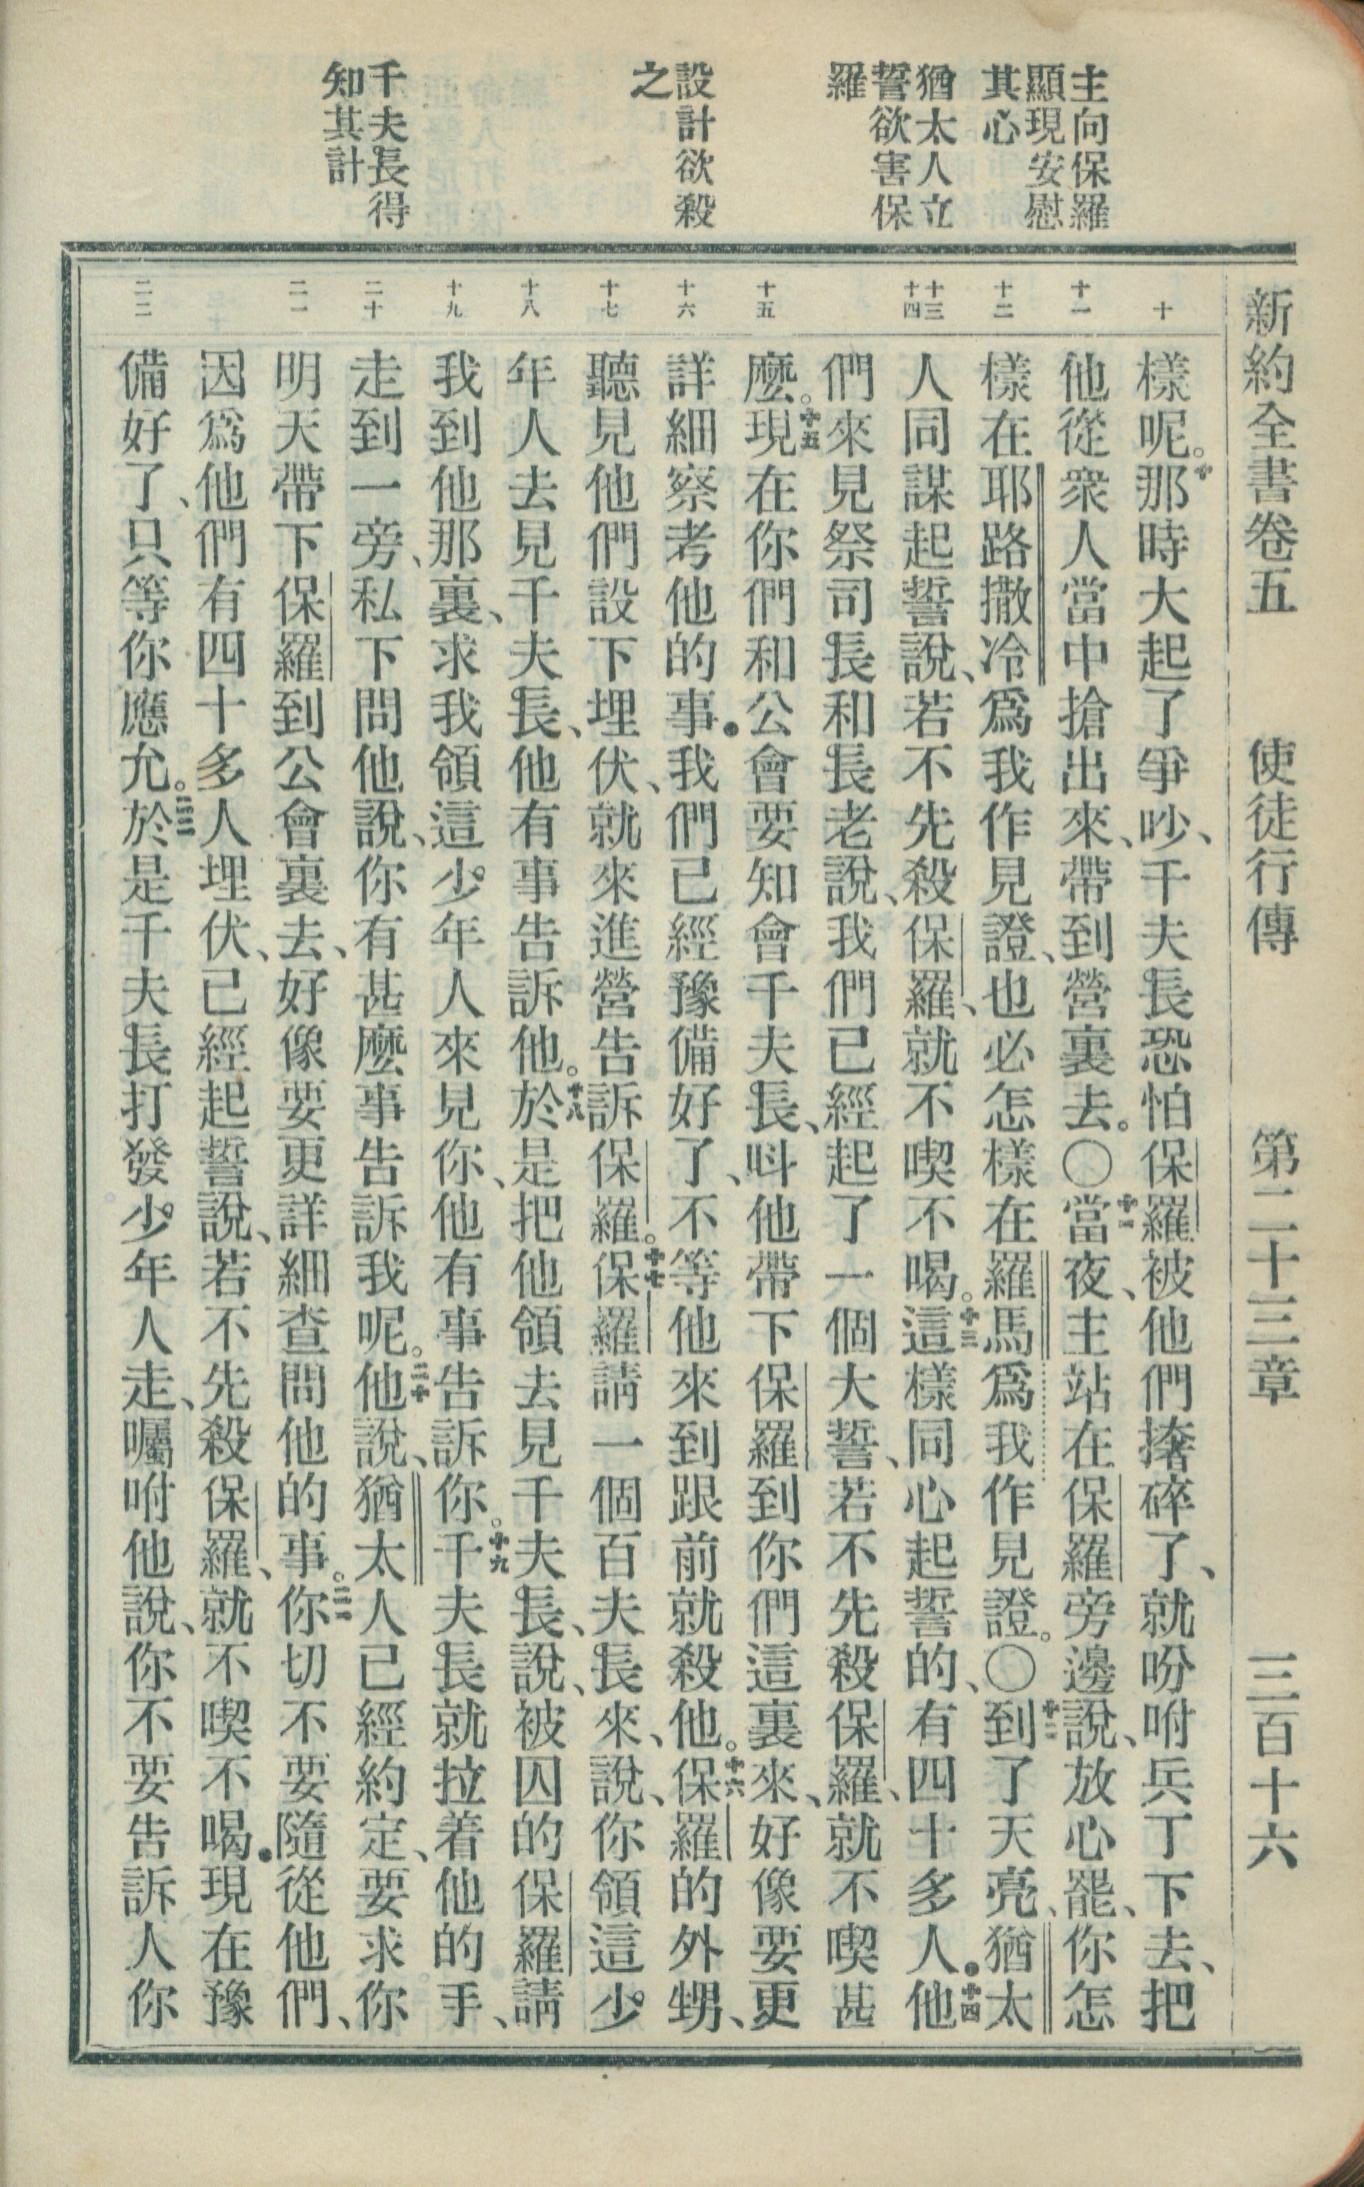 主向保羅
顯現安慰
其心
猶太人立
誓欲害保
羅
設計欲殺
之
千夫長得
知其計
新約全書卷五 使徒行傳 第二十三章 三百十六
十
十一
十二
十三
十四
十五
十六
十七
十八
十九
二十
二一
二二
樣呢。十那時大起了爭吵、千夫長恐怕保羅被他們撦碎了、就吩咐兵丁下去、把
他從衆人當中搶出來、帶到營裏去。〇十一當夜、主站在保羅旁邊說、放心罷、你怎
樣在耶路撒冷爲我作見證、也必怎樣在羅馬爲我作見證。〇十二到了天亮、猶太
人同謀起誓說、若不先殺保羅、就不喫不喝。十三這樣同心起誓的、有四十多人．十四他
們來見祭司長和長老說、我們已經起了一個大誓、若不先殺保羅、就不喫甚
麽。十五現在你們和公會要知會千夫長、呌他帶下保羅到你們這裏來、好像要更
詳細察考他的事．我們已經豫備好了、不等他來到跟前就殺他。十六保羅的外甥、
聽見他們設下埋伏、就來進營告訴保羅。十七保羅請一個百夫長來、說、你領這少
年人去見千夫長、他有事告訴他。十八於是把他領去見千夫長、說、被囚的保羅請
我到他那裏、求我領這少年人來見你、他有事告訴你。十九千夫長就拉着他的手、
走到一旁、私下問他說、你有甚麽事告訴我呢。二十他說、猶太人已經約定、要求你
明天帶下保羅到公會裏去、好像要更詳細查問他的事。二一你切不要隨從他們、
因爲他們有四十多人埋伏、已經起誓說、若不先殺保羅、就不喫不喝．現在豫
備好了、只等你應允。二二於是千夫長打發少年人走、囑咐他說、你不要告訴人你